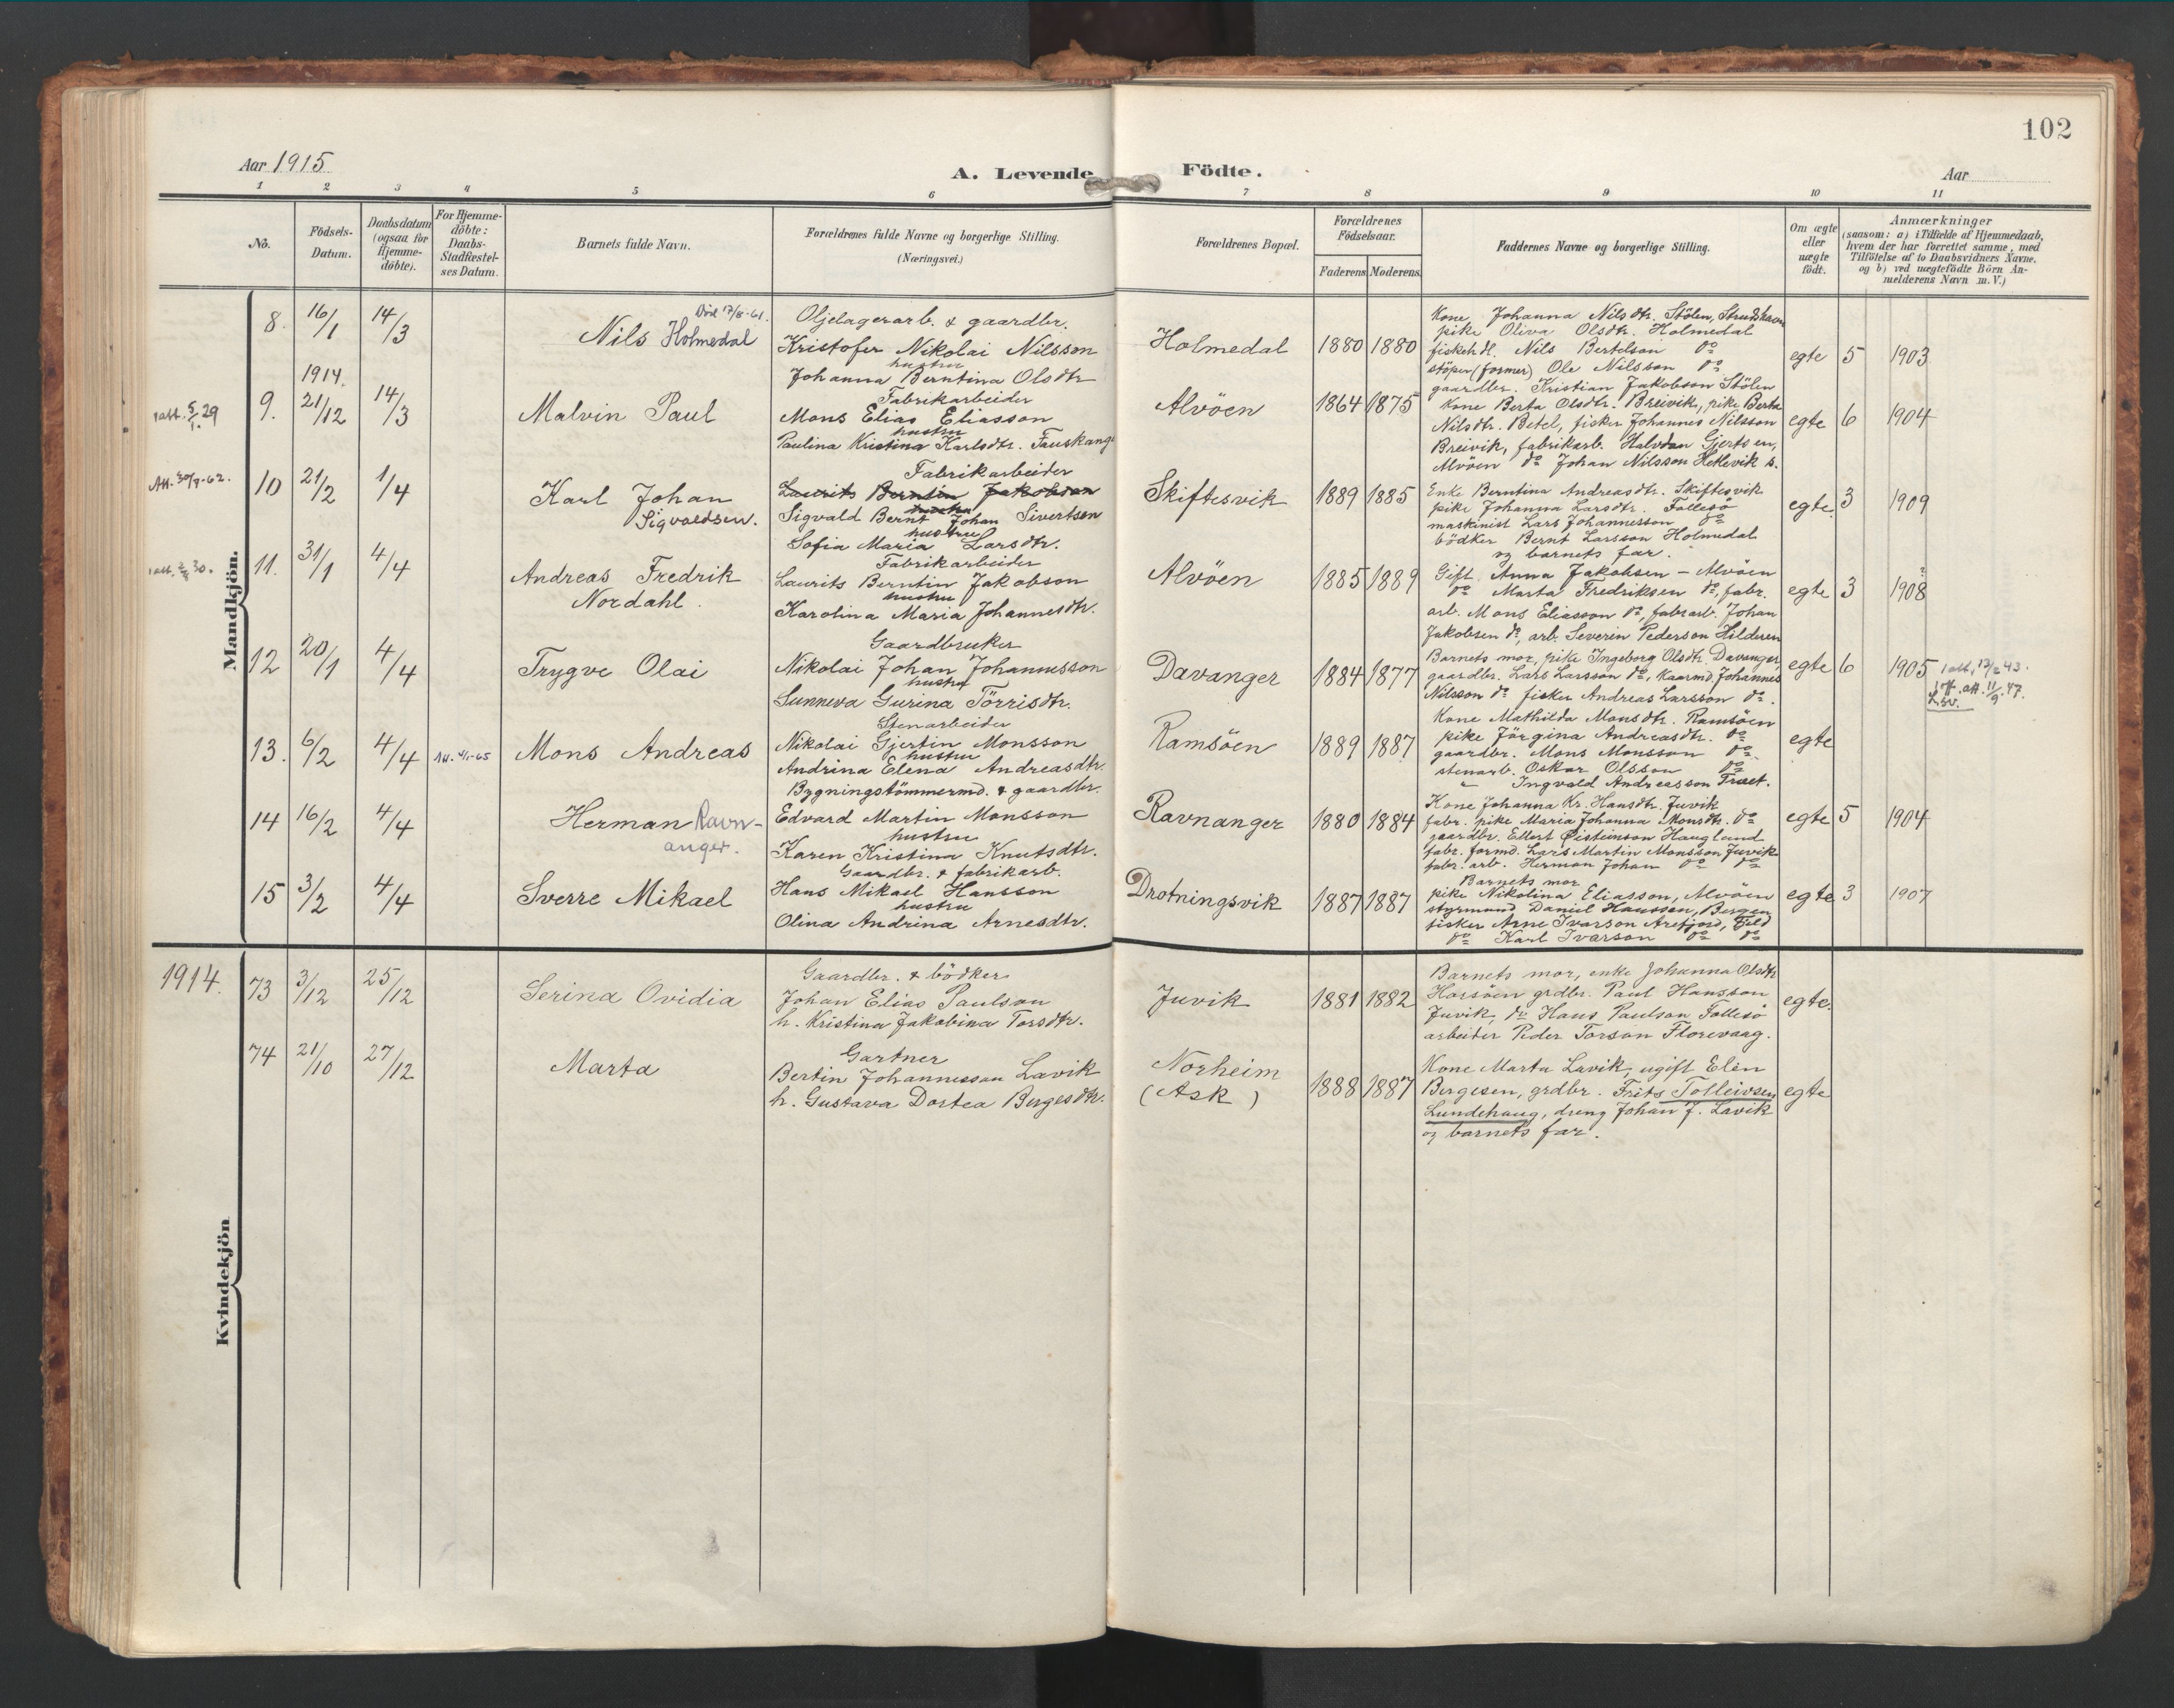 102
Aar 1915
A. Levende Födte.
Aar
1 2 3 4 5 6 7 8 9 10 11
No.
Födsels-Datum.
Daabsdatum (ogsaa for Hjemme-döbte).
For Hjemme-döbte: Daabs-Stadfæstel-ses Datum.
Barnets fulde Navn.
Forældrenes fulde Navne og borgerlige Stilling.
(Næringsvei.)
Forældrenes Bopæl.
Forældrenes Födselsaar.
Faderens Moderens
Faddernes Navne og borgerlige Stilling.
Om ægte eller uægte födt.
Anmærkninger
(saasom: a) i Tilfælde af Hjemmedaab, hvem der har forrettet samme, med Tilföielse af to Daabsvidners Navne, og b) ved uægtefödte Börn An-melderens Navn m.V.)
Mandkjön.
8. 16/1 14/3
Nils Holmedal
Död 17/8-61.
Oljelagerarb. & gaardbr.
Kristofer Nikolai Nilsson
hustru
Johanna Berntina Olsdtr
Holmedal 1880 1880
Kone Johanna Nilsdtr. Stölen,
pike Oliva Olsdtr. Holmedal
fiskehdl. Nils Bertelson do
stöper (former) Ole Nilsson do
gaardbr. Kristian Jakobson Stölen
egte 5 1903
1914.
9. 21/12 14/3
Malvin Paul
Fabrikarbeider
Mons Elias Eliasson
hustru
Paulina Kristina Karlsdtr. Fauskang
Alvöen 1864 1875
Kone Berta Olsdtr. Breivik, pike Berta
Nilsdtr. Betel, fisker Johannes Nilsson
Breivik, fabrikarb. Halvdan Gjertsen,
Alvöen do Johan Nilsson Hetlevik s.
egte 6 1904
10 21/2 1/4
Karl Johan
Sigvaldsen.
Fabrikarbeider
Laurits Berntin Jakobson
hustru
Sigvald Bernt Johan Sivertsen
hustru
Sofia Maria Larsdtr.
Skiftesvik 1889 1885
Enke Berntina Andreasdtr. Skiftesvik
pike Johanna Larsdtr. Follesö
maskinist Lars Johannesson do
bödker Bernt Larsson Holmedal
og barnets far.
egte. 3 1909
11. 31/1 4/4
Andreas Fredrik
Nordahl.
Fabrikarbeider
Laurits Berntin Jakobson
hustru
Karolina Maria Johannesdtr.
Alvöen 1885 1889
Gift Anna Jakobsen - Alvöen
do Marta Fredriksen do, fabr.
arb. Mons Eliasson do, fabr.arb. Johan
Jakobsen do, arb. Severin Pederson Hilderen
egte 3 1908
12 20/1 4/4
Trygve Olai
Gaardbruker
Nikolai Johan Johannesson
hustru
Sunneva Gurina Törrisdtr.
Davanger 1884 1877
Barnets mor, pike Ingeborg Olsdtr. Davanger,
gaardbr. Lars Larsson do, Kaarmd. Johannes
Nilsson do fisker Andreas Larsson do.
egte 6 1905
13. 6/2 4/4
Mons Andreas
Stenarbeider
Nikolai Gjertin Monsson
hustru
Andrina Elena Andreasdtr.
Ramsöen 1889 1887
Kone Mathilda Monsdtr. Ramsöen
pike Jörgina Andreasdtr. do
gaardbr. Mons Monsson do
stenarb. Oskar Olsson do
" Ingvald Andreasson Træt.
egte
14 16/2 4/4
Herman Ravn-
anger.
Bygningstömmermd. & gaardbr.
Edvard Martin Monsson
hustru
Karen Kristina Knutsdtr.
Ravnanger 1880 1884
Kone Johanna Kr. Hansdtr. Juvik
fabr. pike Maria Johanna Monsdtr. do
gaardbr. Ellert Øisteinson Haugland
fabr. formd. Lars Martin Monsson Juvik
fabr. arb. Herman Johan do do
egte 5 1904
15 3/2 4/4
Sverre Mikael
Gaardbr. & fabrikarb.
Hans Mikael Hansson
hustru
Olina Andrina Arnesdtr.
Drotningsvik 1887 1887
Barnets mor
pike Nikolina Eliasson, Alvöen
styrmand Daniel Hanssen, Bergen
fisker Arne Ivarson Arefjord, Fjeld
do Karl Ivarson do do
egte 3 1907
Kvindekjön
1914.
73 3/12 25/12
Serina Ovidia
Gaardbr. & bödker
Johan Elias Paulson
h. Kristina Jakobina Torsdtr.
Juvik 1881 1882
Barnets mor, enke Johanna Olsdtr
Horsöen grdbr. Paul Hansson
Juvik, do Hans Paulson Follesö
arbeider Peder Torson Florevaag.
egte.
74 21/10 27/12
Marta
Gartner
Bertin Johannesson Lavik
h. Gustava Dortea Bergesdtr.
Norheim
(Ask)
1888 1887
Kone Marta Lavik, ugift Elen
Bergesen, grdbr. Frits Tolleivsen
Lundehaug, dreng Johan J. Lavik
og barnets far.
egte